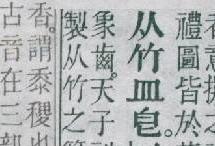 禮圖皆於
从竹皿皀
象齒。天子
製从竹之
香。謂黍稷也
古音在三部